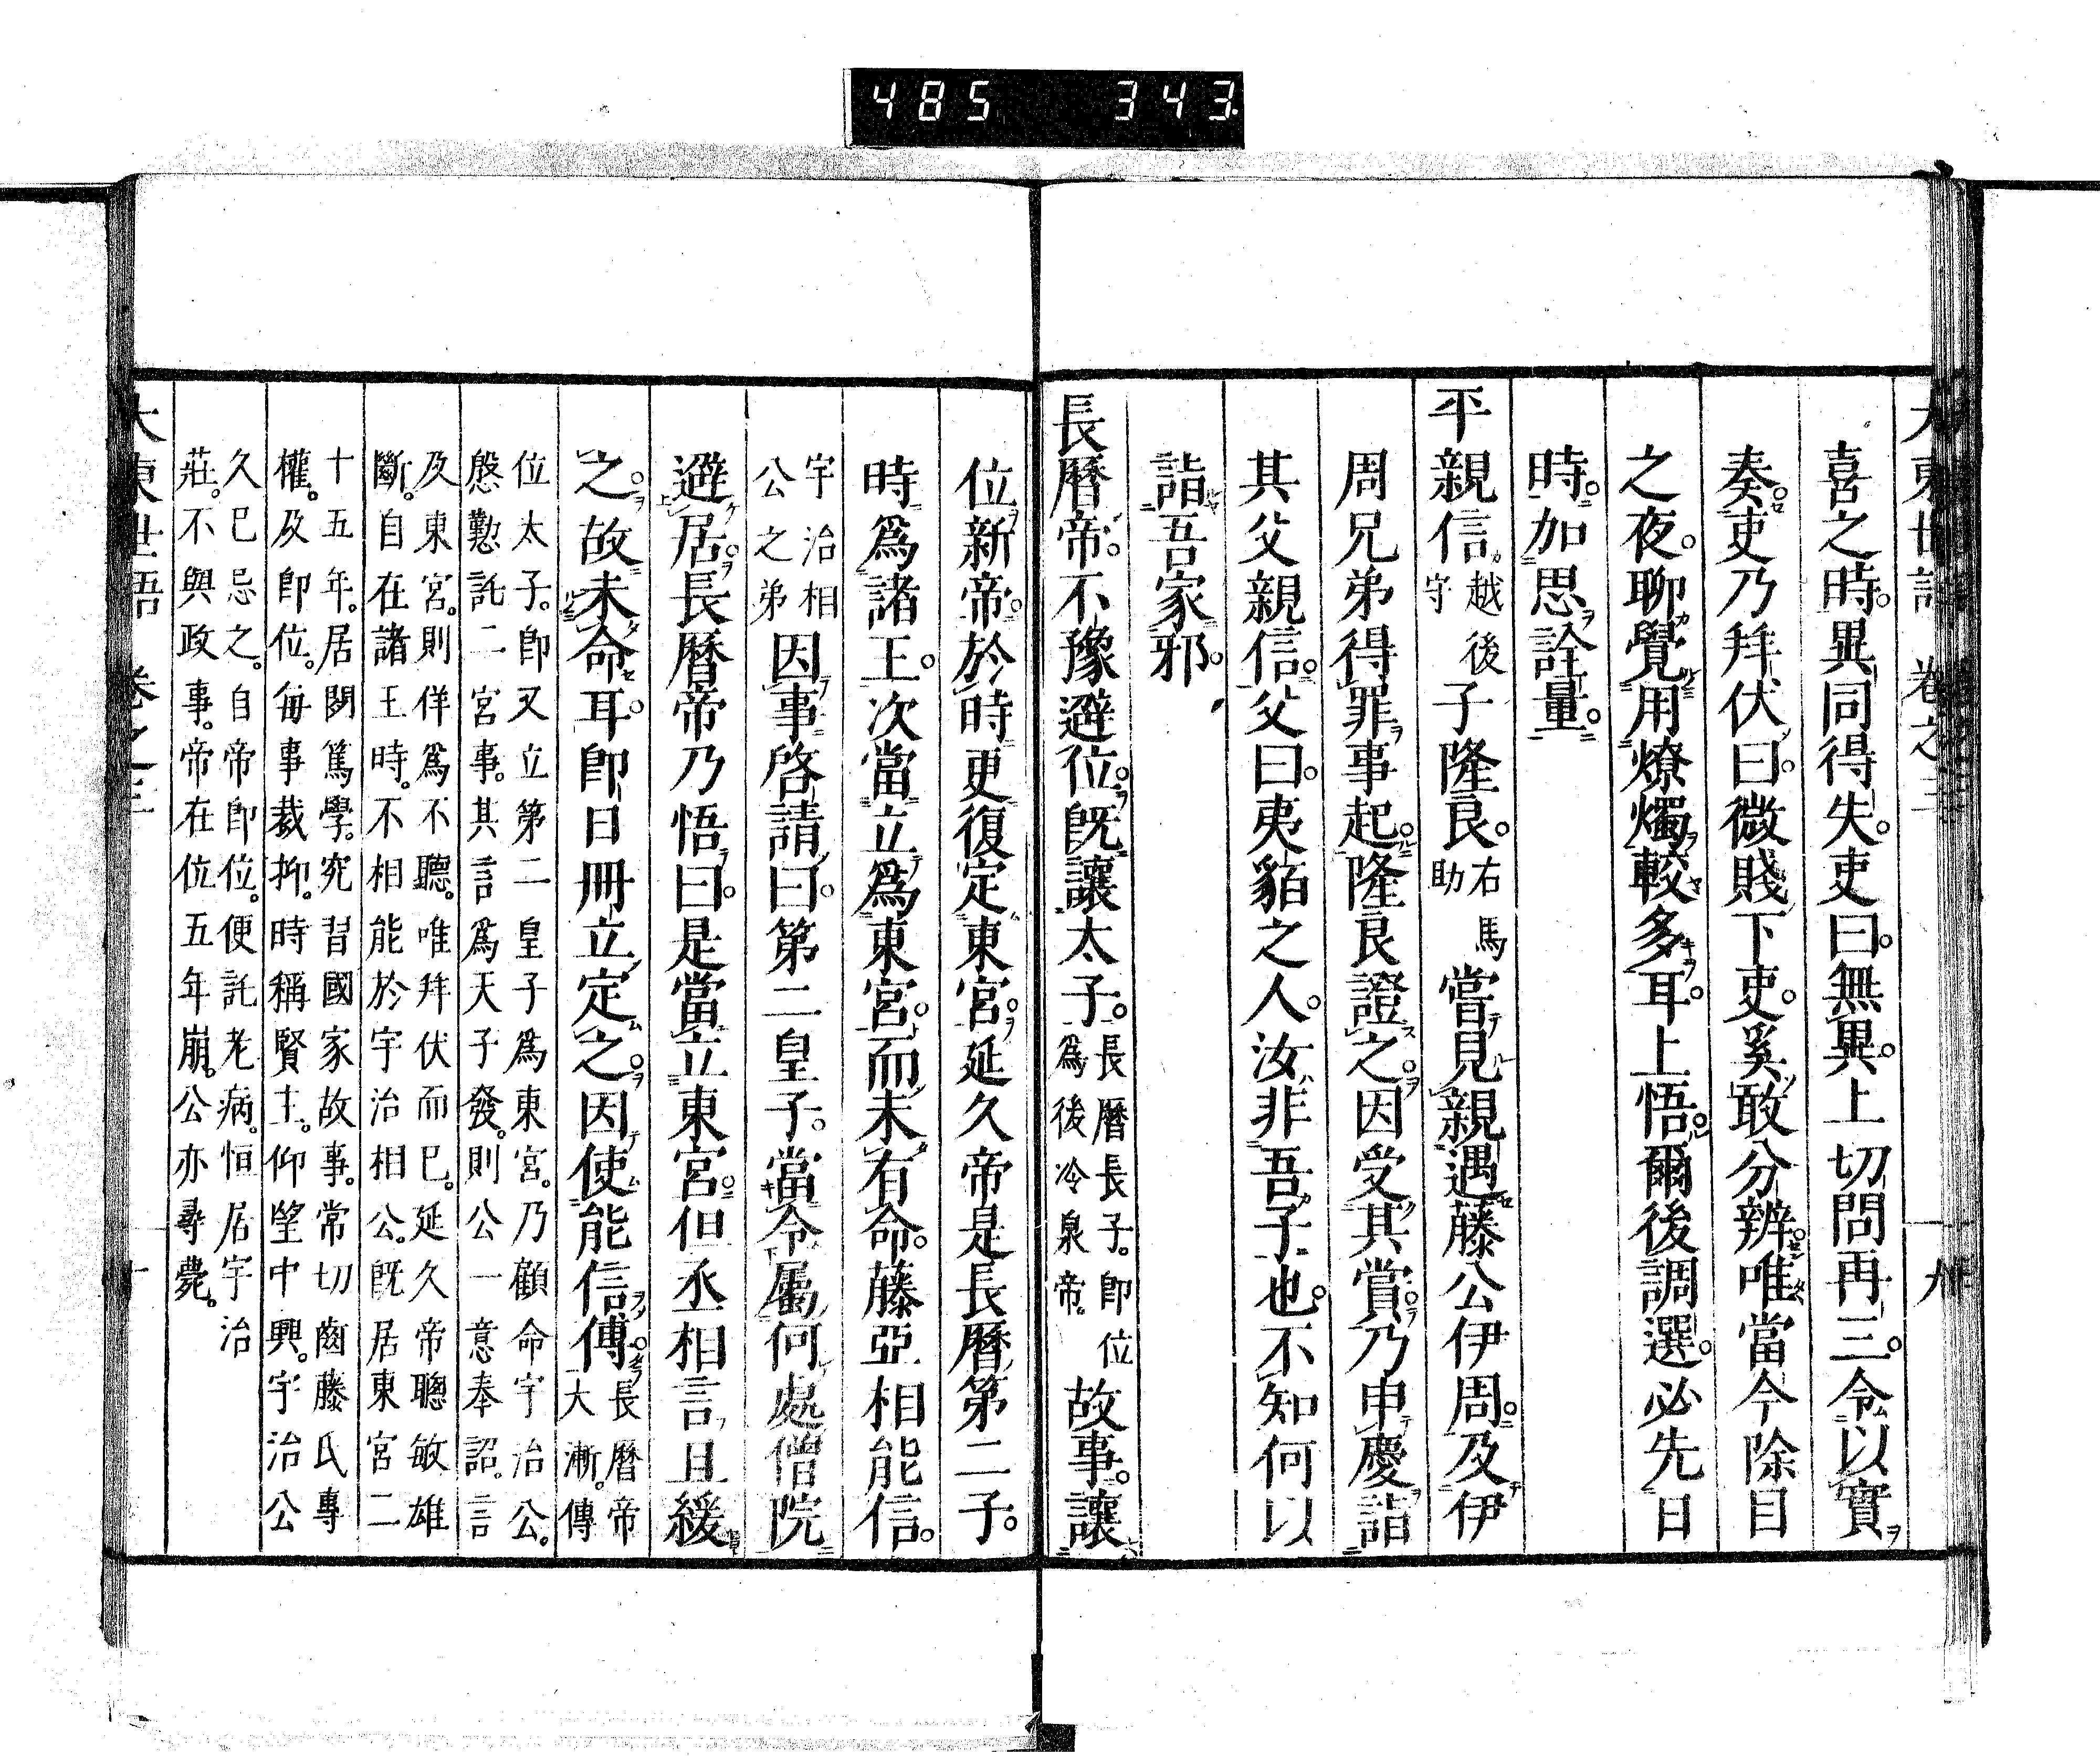 485 343
喜之時。異同得失。吏曰。無異。上切問再三。令以實
奏。吏乃拜伏曰。微賤下吏。奚敢分辨。唯當今除目
之夜。聊覺用燎燭較多耳。上悟。爾後調選。必先日
時。加思詮量。
平親信越後守子隆良。右馬助嘗見親遇藤公伊周。及伊
周兄弟得罪事起。隆良證之。因受其賞。乃申慶詣
其父親信。父曰。夷貊之人。汝非吾子也。不知何以
詣吾家邪。
長曆帝。不豫避位。既讓太子。長曆長子。即位爲後冷泉帝。故事。讓
位新帝。於時更復定東宮。延久帝是長曆第二子。
時爲諸王。次當立爲東宮。而未有命。藤亞相能信。
宇治相公之弟因事啓請曰。第二皇子。當令屬何處僧院
避居。長曆帝乃悟曰。是當立東宮。但丞相言且緩
之。故未命耳。即日冊立定之。因使能信傅。長曆帝大漸。傳
位太子。即又立第二皇子爲東宮。乃顧命宇治公。
慇懃託二宮事。其言爲天子發。則公一意奉詔。言
及東宮。則佯爲不聽。唯拜伏而已。延久帝聰敏雄
斷。自在諸王時。不相能於宇治相公。既居東宮二
十五年。居閑篤學。究習國家故事。常切齒藤氏專
權。及即位。每事裁抑。時稱賢主。仰望中興。宇治公
久已忌之。自帝即位。便託老病。恒居宇治
莊。不與政事。帝在位五年崩。公亦尋薨。
大東世語 卷之三 十